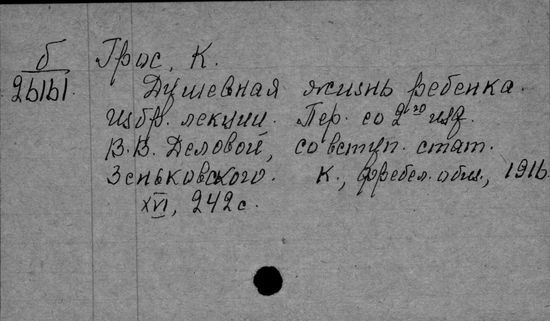 б Грос, К.
26161. Душевная жизнь ребенка.
Избр. лекции. Пер. со 2го изд.
В.В. Деловой, со вступ. стат.
Зеньковского. К., Фребел. общ., 1916
XVI, 242 с.